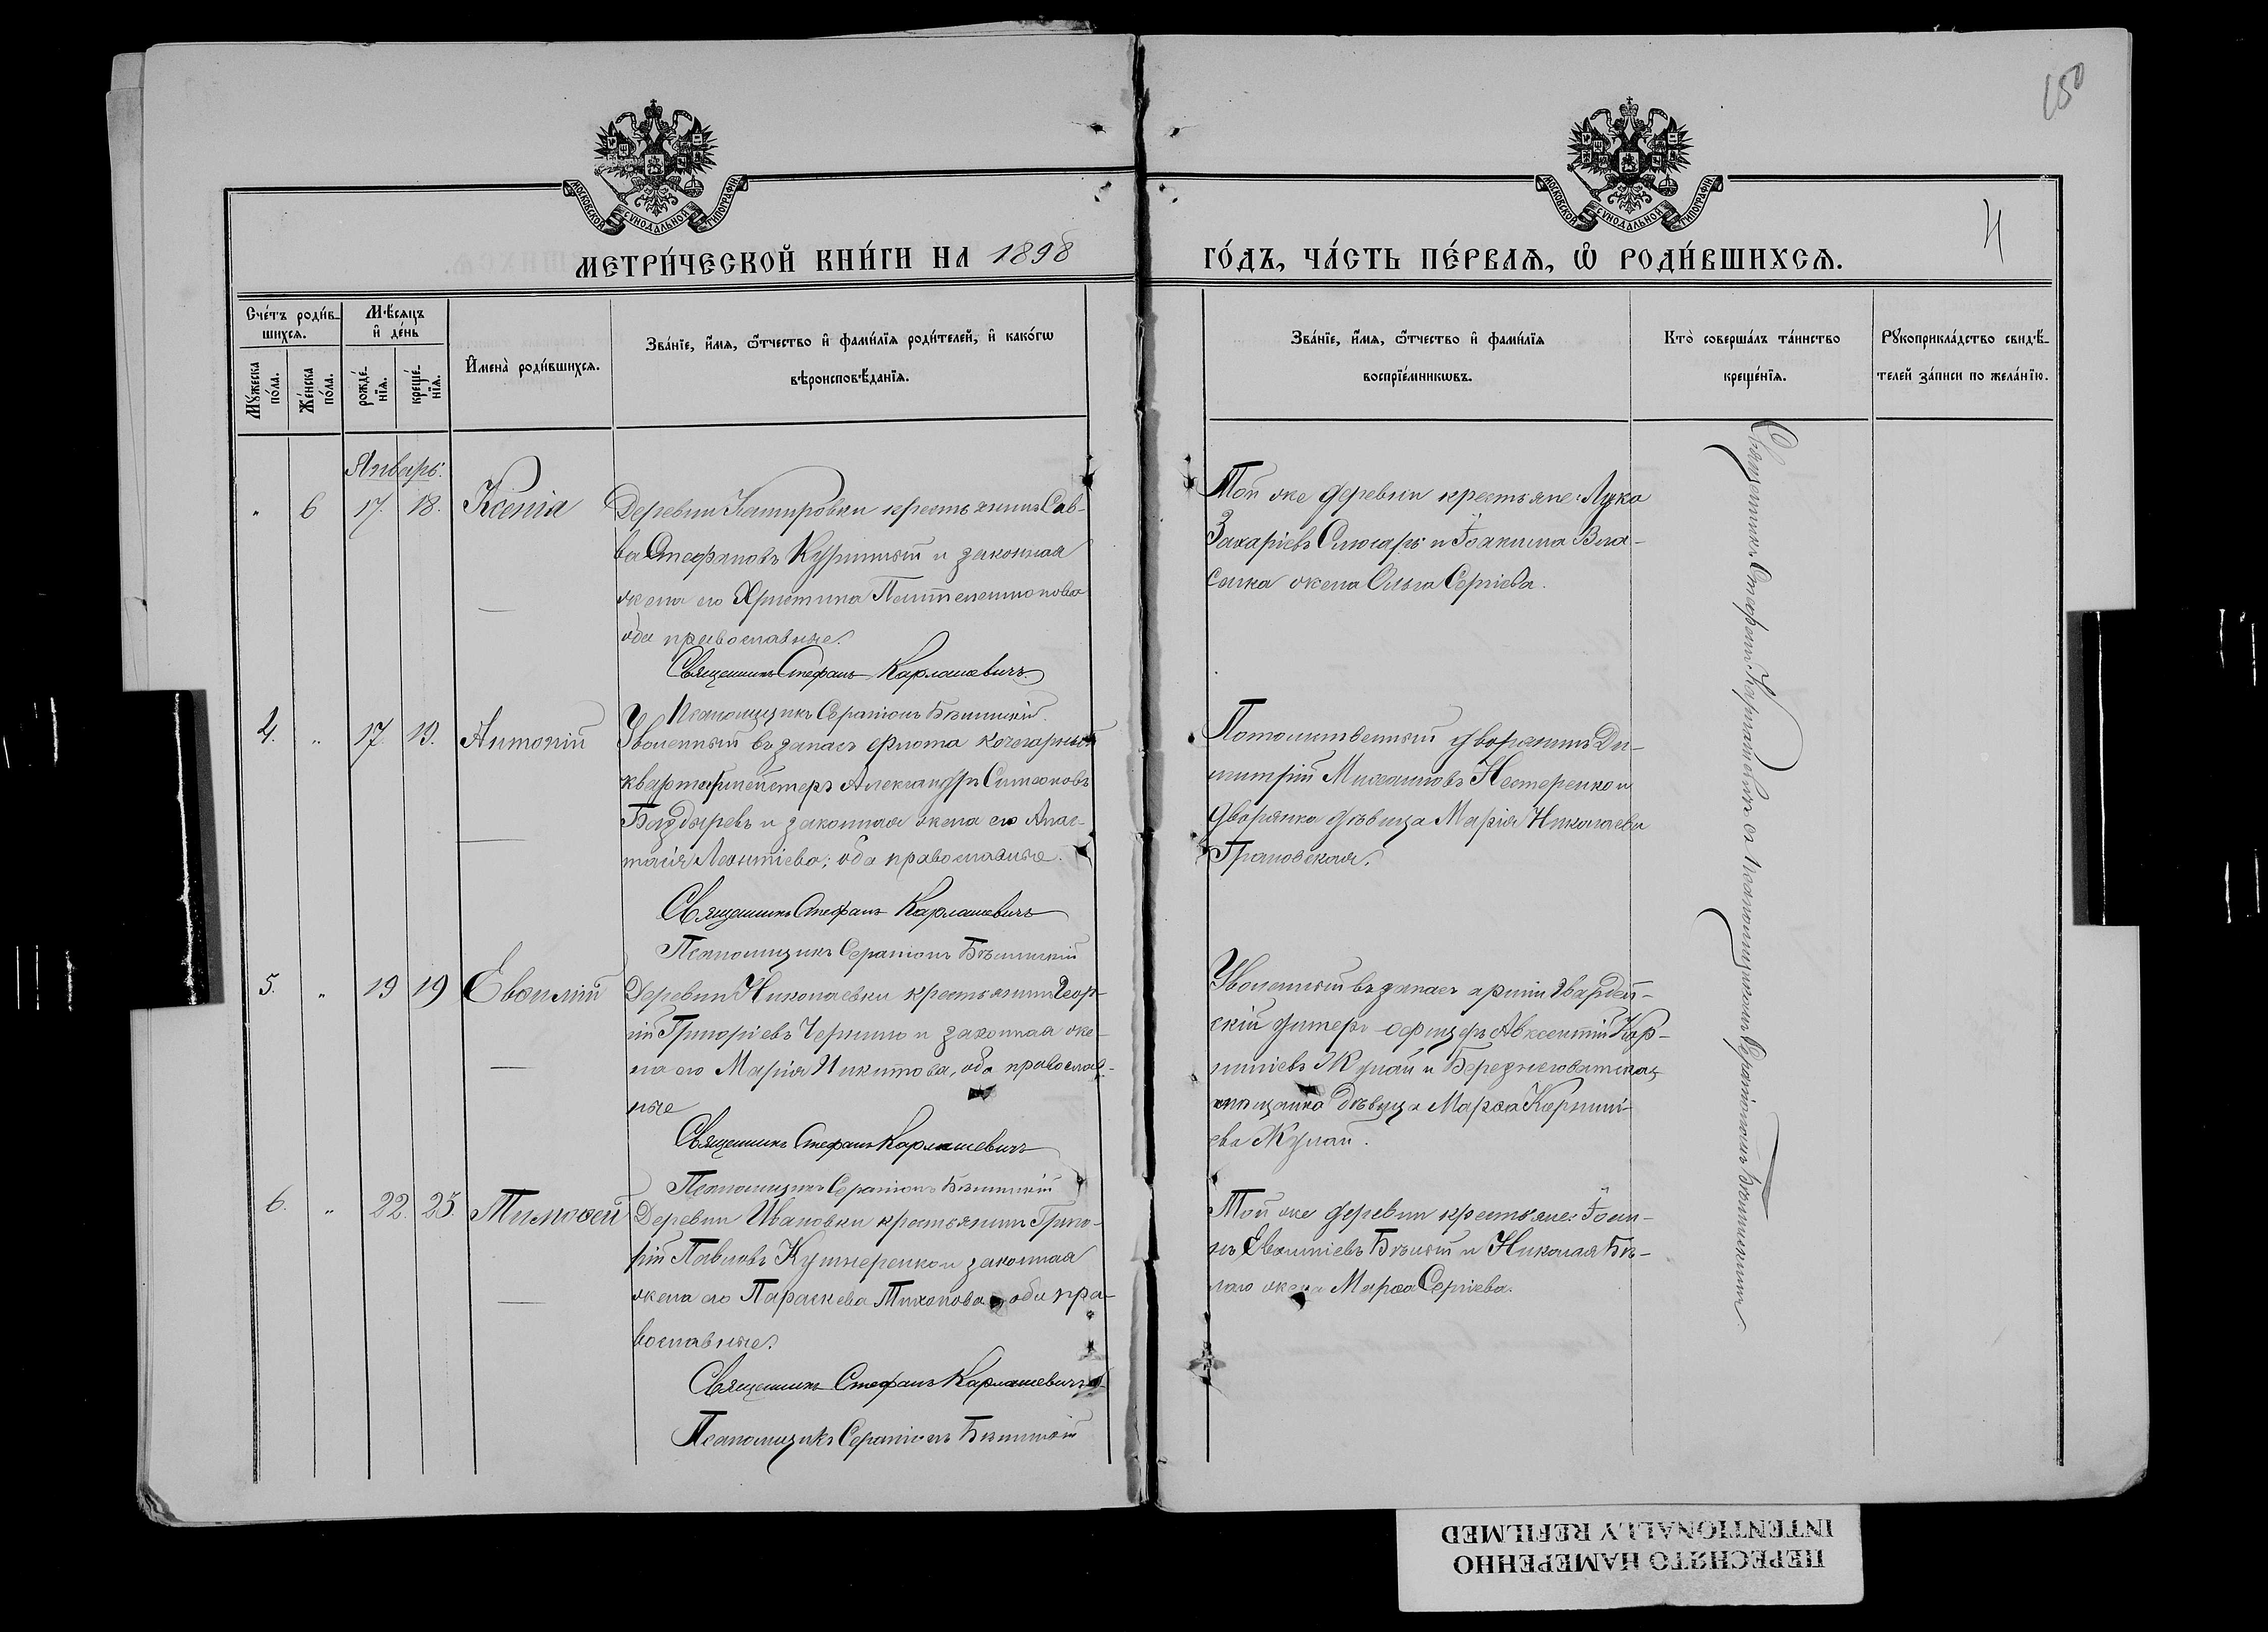 150
4
МОСКОВСКОЙ СѴНОДАЛЬНОЙ ТИПОГРАФІИ.
МОСКОВСКОЙ СѴНОДАЛЬНОЙ ТИПОГРАФІИ.
МЕТРИ́ЧЕСКОЙ КНИ́ГИ НА 1898 ГО́ДЪ, ЧА́СТЬ ПЕ́РВАѦ, Ѡ҆ РОДИ́ВШИХСѦ.
Сче́тъ роди́в-
шихсѧ.
Мꙋ́жеска по́ла.
Же́нска по́ла.
Мѣ́сѧцъ
и҆ де́нь
рожде́-нїѧ.
креще́-нїѧ.
И҆мена̀ роди́вшихсѧ.
Зва́нїе, и҆́мѧ, ѻ҆́тчество и҆ фами́лїѧ роди́телей, и҆ како́гѡ
вѣроисповѣ́данїѧ.
Зва́нїе, и҆́мѧ, ѻ҆́тчество и҆ фами́лїѧ
воспрїе́мникѡвъ.
Кто̀ соверша́лъ та́инство
креще́нїѧ.
Рꙋкоприкла́дство свидѣ́-
телей за́писи по жела́нїю.
Январь.
" 6 17. 18. Ксенія
Деревни Катировки крестьянинъ Сав-
ва Стефановъ и законная
жена его Христина Пантелеимонова
оба православные.
Священникъ Стефанъ Карлашевичъ
Псаломщикъ Серапіонъ
Той же деревни крестьяне: Лука
Захаріевъ Слюсарь и Іоакима Вла-
сенка жена Ольга Сергіева.
4. " 17. 19. Антоній
Уволенный въ запасъ флота кочегарный
квартирмейстеръ Александръ Симеоновъ
Баздыревъ и законная жена его Анас-
тасія Леонтіева; оба православные.
Священникъ Стефанъ Карлашевичъ
Псаломщикъ Серапіонъ
Потомственный дворянинъ Ди-
митрій Михаиловъ Нестеренко и
дворянка дѣвица Марія Николаева
Грановская.
5. " 19 19 Евѳимій
Деревни Николаевки крестьянинъ Геор-
гій Григоріевъ и законная же-
на его Марія Никитова, оба православ-
ные
Священникъ Стефанъ Карлашевичъ
Псаломщикъ Серапіонъ
Уволенный въ запасъ арміи Гвардей-
скій унтеръ-офицеръ Авксентій Кор-
ниліевъ Жулай и Березнеговатская
мѣщанка дѣвица Марѳа Корнилі-
ева Жулай.
6. " 22. 25. Тимоѳей
Деревни Ивановки крестьянинъ Григо-
рій Павловъ Кушнеренко и законная
жена его Параскева Тихонова, оба пра-
вославные.
Священникъ Стефанъ Карлашевичъ
Псаломщикъ Серапіонъ
Той же деревни крестьяне: Іоан-
нъ Евѳиміевъ Бѣлый и Николая Бѣ-
лаго жена Марѳа Сергіева.
Священникъ Стефанъ Карлашевичъ съ Псаломщикомъ Серапіономъ
ПЕРЕСНЯТО НАМЕРЕННО
INTENTIONALLY REFILMED